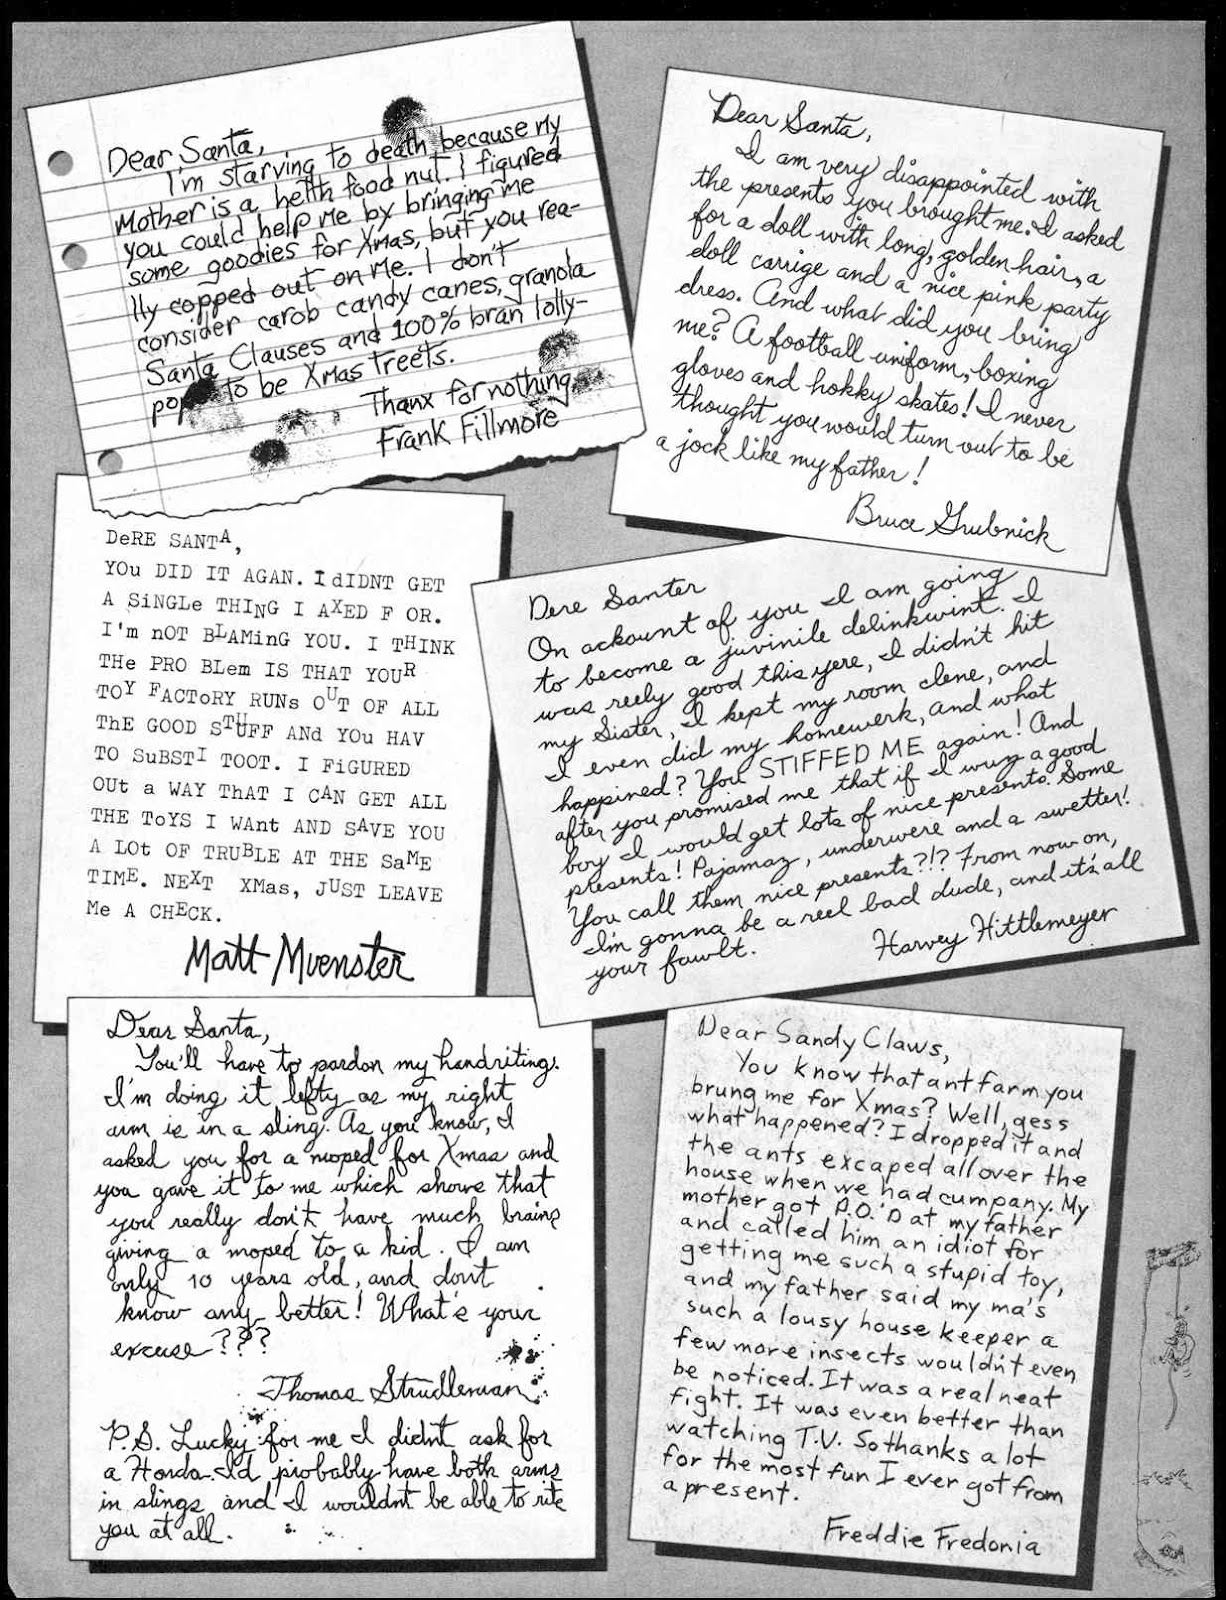 Dear Santa,
I'm starving to death because my
Mother is a helth food nut. I figured
you could help me by bringing me
some goodies for Xmas, but you rea-
lly copped out on me. I don't
consider carob candy canes, granola
Santa Clauses and 100% bran lolly-
pops to be Xmas treets.
Thanx for nothing,
Frank Fillmore
Dear Santa,
I am very disappointed with
the presents you brought me. I asked
for a doll with long, golden hair, a
doll carrige and a nice pink party
dress. And what did you bring
me? A football uniform, boxing
gloves and hokky skates! I never
thought you would turn out to be
a jock like my father!
Bruce Grubnick
DeRE SANTA,
YOu DID IT AGAN. I dIDNT GET
A SiNGLe THING I AXED F OR.
I'm nOT BLAMinG YOU. I THINK
THe PRO BLem IS THAT YOUR
TOY FACToRY RUNs OUT OF ALL
ThE GOOD STUFF ANd YOu HAV
TO SuBSTI TOOT. I FiGURED
OUt a WAY ThAT I CAN GET ALL
THE ToYS I WAnt AND SAVE YOU
A LOt OF TRUBLE AT THE SaME
TIME. NEXT XMas, JUST LEAVE
Me A CHECK.
Matt Muenster
Dere Santer
On ackount of you I am going
to become a juvinile delinkwint. I
was reely good this yere, I didn't hit
my Sister, I kept my room clene, and
I even did my homewerk, and what
happined? You STIFFED ME again! And
after you promised me that if I wuz a good
boy I would get lots of nice presents. Some
presents! Pajamaz, underwere and a swetter!
You call them nice presents?!? From now on,
I'm gonna be a reel bad dude, and it's all
your fawlt.
Harvey Hittlemeyer
Dear Santa,
You'll have to pardon my handriting.
I'm doing it lefty as my right
arm is in a sling. As you know, I
asked you for a moped for Xmas and
you gave it to me which shows that
you really don't have much brains
giving a moped to a kid. I am
only 10 years old, and don't
know any better! What's your
excuse???
Thomas Strudleman
P.S. Lucky for me I didn't ask for
a Honda. I'd probably have both arms
in slings and I wouldnt be able to rite
you at all.
Dear Sandy Claws,
You know that ant farm you
brung me for Xmas? Well, gess
what happened? I dropped it and
the ants excaped all over the
house when we had cumpany. My
mother got P.O.'D at my father
and called him an idiot for
getting me such a stupid toy,
and my father said my ma's
such a lousy house keeper a
few more insects wouldn't even
be noticed. It was a real neat
fight. It was even better than
watching T.V. So thanks a lot
for the most fun I ever got from
a present.
Freddie Fredonia